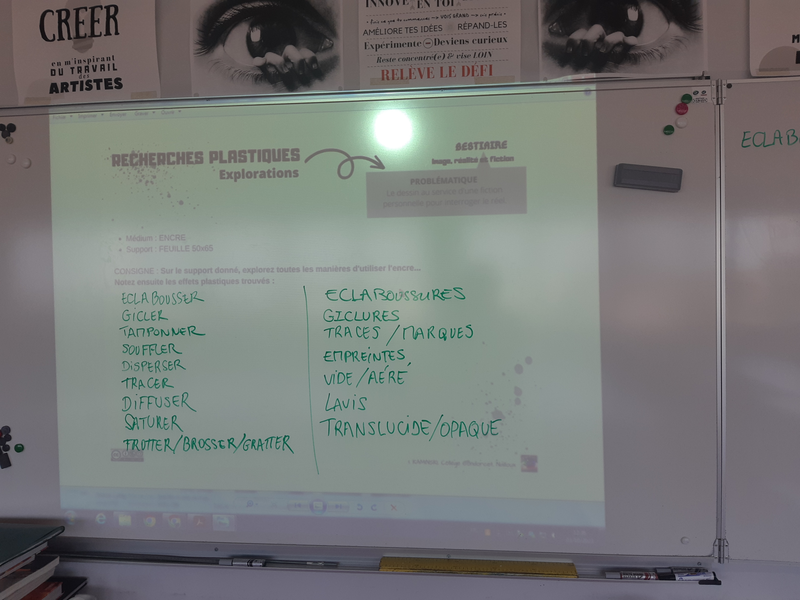 CREER
en m'inspirant
DU TRAVAIL
des
ARTISTES
INNOVE
EN TOI
VOIS GRAND
AMÉLIORE TES IDÉES
RÉPAND-LES
Expérimente
Deviens curieux
Reste concentré(e) & vise LOIN
RELÈVE LE DÉFI
RECHERCHES PLASTIQUES
Explorations
BESTIAIRE
Image, réalité et fiction
PROBLÉMATIQUE
• Médium : ENCRE
• Support : FEUILLE 50x65
CONSIGNE : Sur le support donné, explorez toutes les manières d'utiliser l'encre...
Notez ensuite les effets plastiques trouvés :
ECLABOUSSER
GICLER
TAMPONNER
SOUFFLER
DISPERSER
TRACER
DIFFUSER
SATURER
FROTTER/BROSSER/GRATTER
ECLABOUSSURES
GICLURES
TRACES / MARQUES
EMPREINTES
VIDE / AÉRÉ
LAVIS
TRANSLUCIDE/OPAQUE
ECLABO